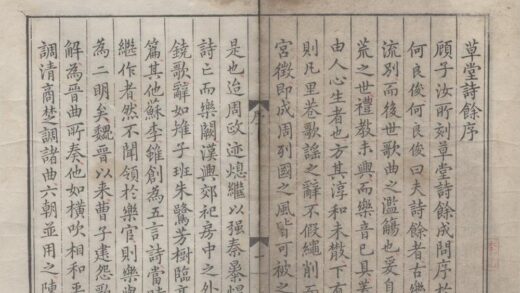 草堂詩餘序
顧子汝所刻草堂詩餘成問序於
何良俊何良俊曰夫詩餘者古樂
流別而後世歌曲之濫觴也爰自
荒之世禮教未興而樂音已具蓋
由人心生者也方其淳和未散下有
則凡里巷歌謠之辭不假繩削而
宮徵即成周列國之風皆可被之
是也迨周政迹熄繼以強秦暴
詩亡而樂闕漢興郊祀房中之外
鐃歌辭如雉子班朱鷺芳樹臨高
篇其他蘇李雖創為五言詩當時
繼作者然不聞領於樂官則樂與
為二明矣魏晉以來曹子建怨歌
解為晉曲所奏他如橫吹相和平
調清商楚調諸曲六朝並用之陳
序
一